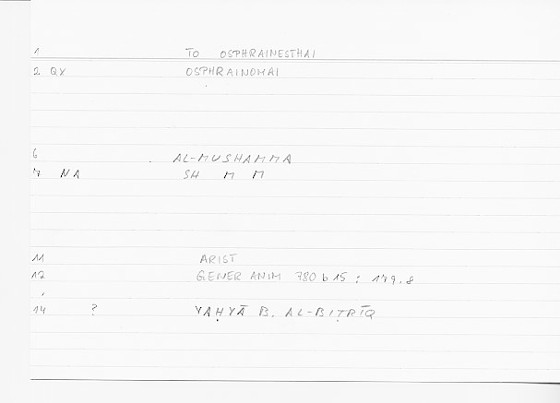 1 TO OSPHRAINESTHAI
2 QX OSPHRAINOMAI
6 AL-MUSHAMMA
7 NA SH M M
11 ARIST
12 GENER ANIM 780 b 15 : 179.8
14 ? YAḤYĀ B. AL-BIṬRĪQ